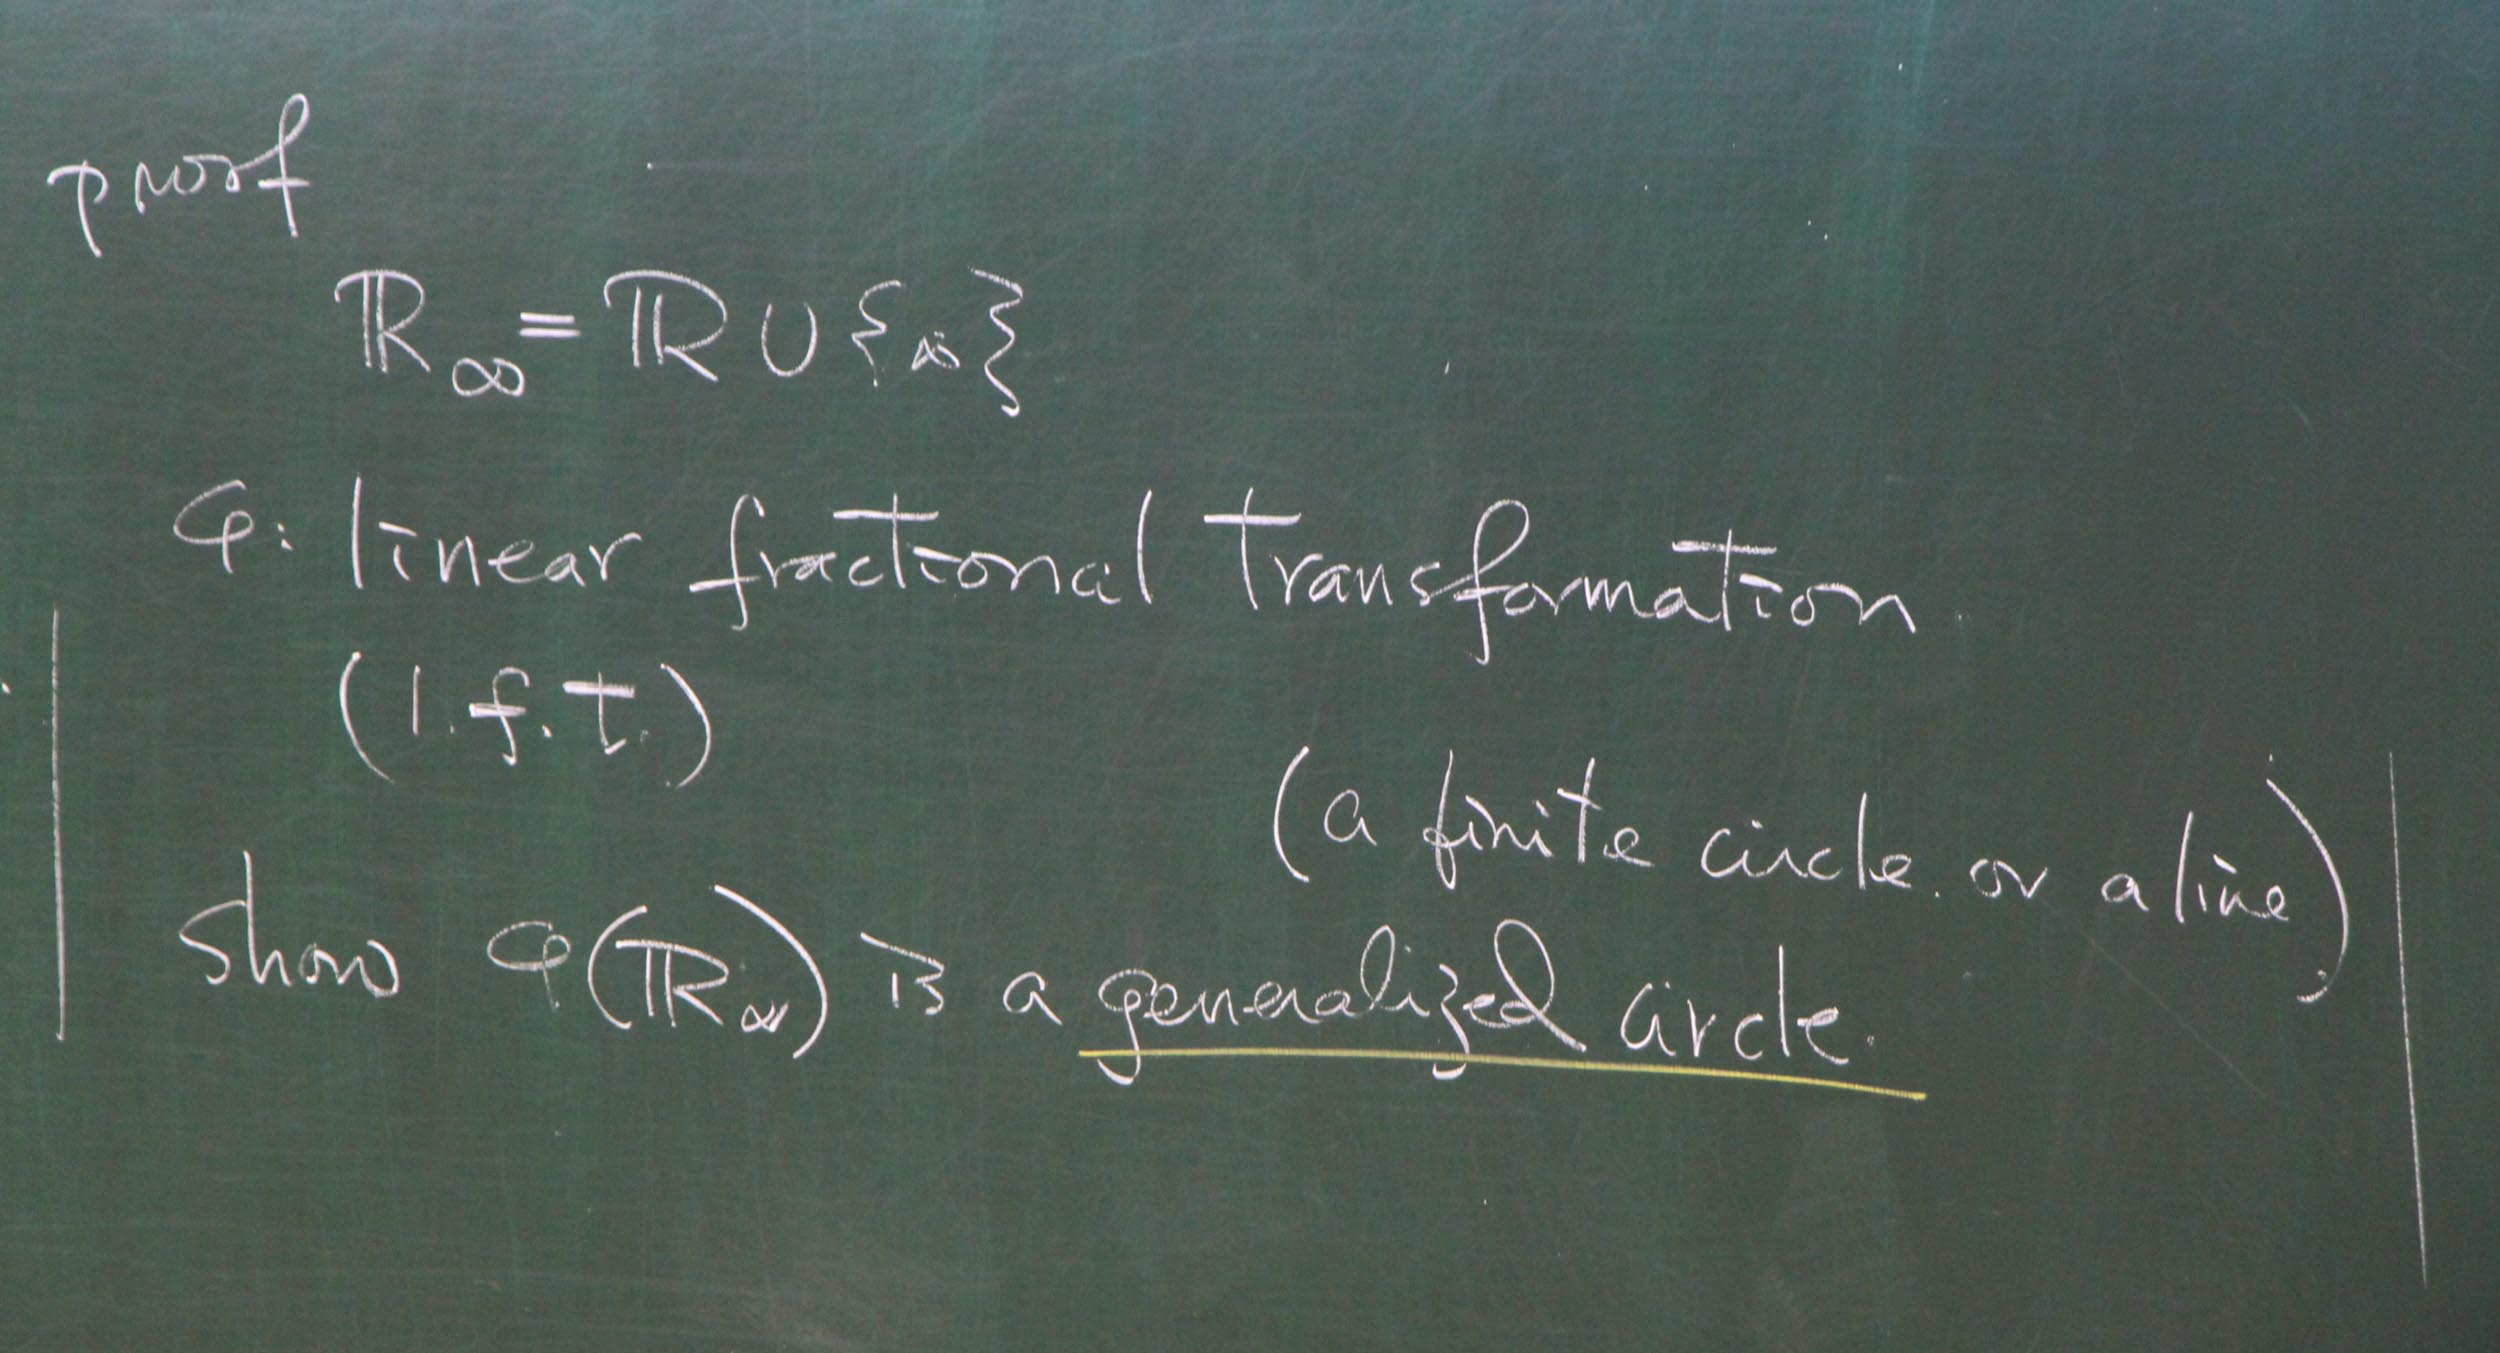 proof
ℝ∞ = ℝ ∪ {∞}
φ: linear fractional transformation.
(l.f.t.)
(a finite circle. or a line)
show φ(ℝ∞) is a generalized circle.